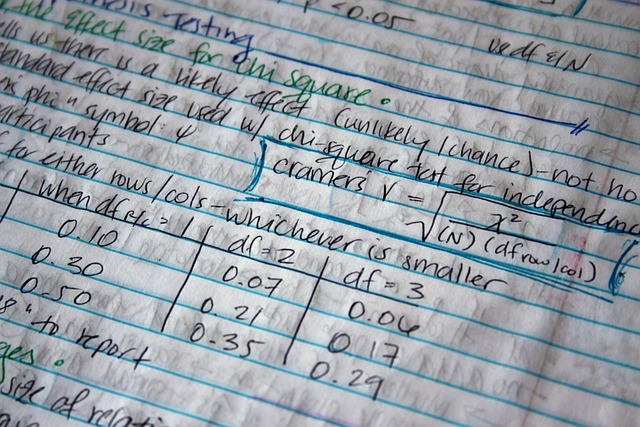 p < 0.05
Testing
use df & N
effect size for chi square.
us there is a likely effect (unlikely / chance) - not no
standard effect size used w/ chi-square test for independence
phi" symbol: φ
articipants
cramers V = √ x² / (N) (df row/col)
for either rows/cols - whichever is smaller
when df r/c = 1 df = 2 df = 3
0.10 0.07 0.06
0.30 0.21 0.17
0.50 0.35 0.29
" to report
size of relati